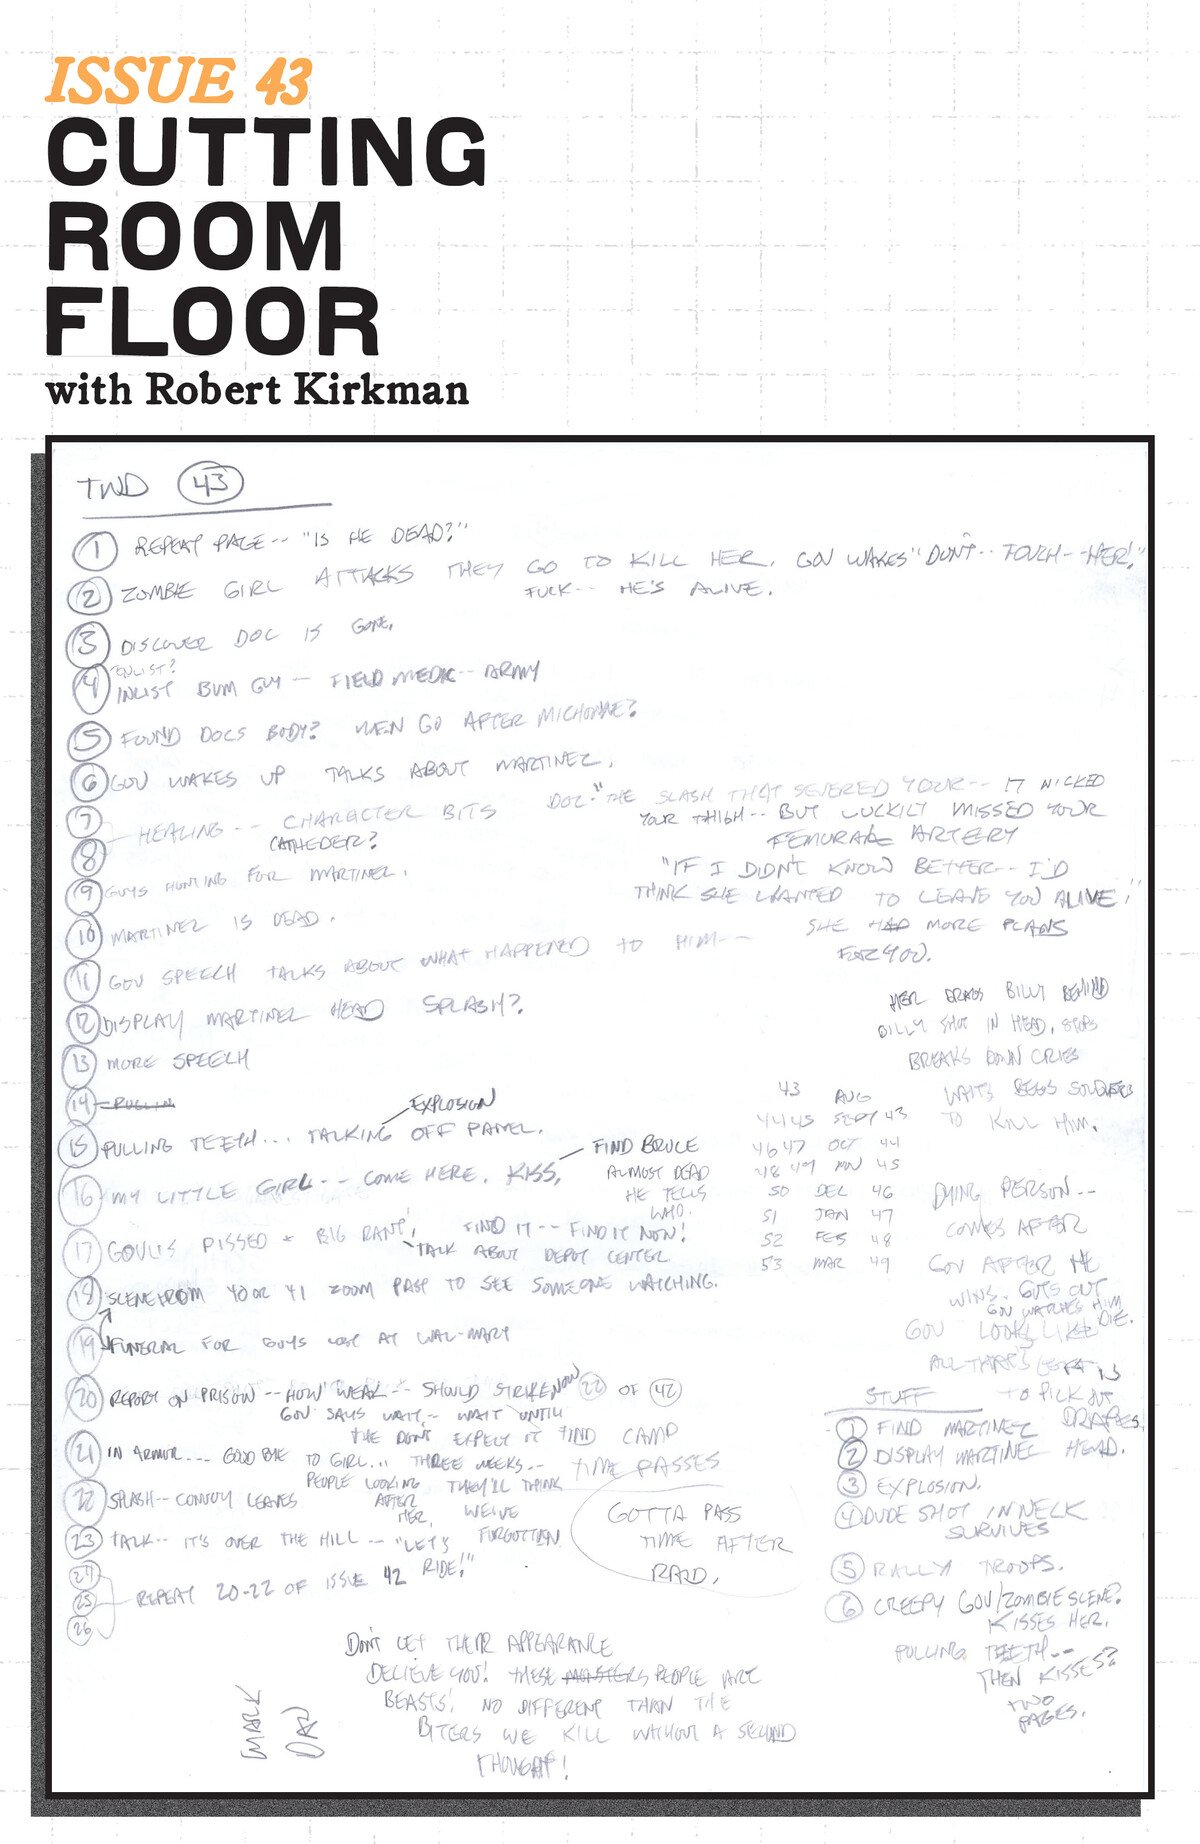 ISSUE 43
CUTTING
ROOM
FLOOR
with Robert Kirkman
TWD 43
1 REPEAT PAGE-- "IS HE DEAD?"
2 ZOMBIE GIRL ATTACKS THEY GO TO KILL HER. GOV WAKES "DON'T-- TOUCH--HER!"
FUCK-- HE'S ALIVE.
3 DISCOVER DOC IS GONE.
ENLIST?
4 INLIST BUM GUY -- FIELD MEDIC-- ARMY
5 FOUND DOCS BODY? MEN GO AFTER MICHONNE?
6 GOV WAKES UP TALKS ABOUT MARTINEZ.
7
8
HEALING-- CHARACTER BITS
CATHEDER?
DOC: "THE SLASH THAT SEVERED YOUR-- IT NICKED
YOUR THIGH-- BUT LUCKILY MISSED YOUR
FEMURAL ARTERY
"IF I DIDN'T KNOW BETTER-- I'D
THINK SHE WANTED TO LEAVE YOU ALIVE."
SHE HAD MORE PLANS
FOR YOU.
9 GUYS HUNTING FOR MARTINEZ.
10 MARTINEZ IS DEAD.
11 GOV SPEECH TALKS ABOUT WHAT HAPPENED TO HIM--
12 DISPLAY MARTINEZ HEAD SPLASH?
13 MORE SPEECH
14
15 PULLING TEETH... TALKING OFF PANEL.
EXPLOSION
16 MY LITTLE GIRL-- COME HERE. KISS.
FIND BRUCE
ALMOST DEAD
HE TELLS
WHO.
17 GOV IS PISSED + BIG RANT! FIND IT-- FIND IT NOW!
TALK ABOUT DEPOT CENTER
18 SCENE FROM 40 OR 41 ZOOM PAST TO SEE SOMEONE WATCHING.
19 FUNERAL FOR GUYS LOST AT WAL-MART
20 REPORT ON PRISON-- HOW WEAK-- SHOULD STRIKE NOW 22 OF 42
GOV SAYS WAIT-- WAIT UNTIL
THE DON'T EXPECT IT FIND CAMP
21 IN ARMOR... GOOD BYE TO GIRL... THREE WEEKS-- TIME PASSES
PEOPLE LOOKING THEY'LL THINK
AFTER
HER. WE'VE
FORGOTTEN
22 SPLASH-- CONVOY LEAVES
23 TALK-- IT'S OVER THE HILL-- "LET'S
RIDE!"
24
25
26
REPEAT 20-22 OF ISSUE 42
GOTTA PASS
TIME AFTER
RAID.
HER DRAGS BILLY BEHIND
BILLY SHOT IN HEAD. STOPS
BREAKS DOWN CRIES
WAITS BEGS SOLDIERS
TO KILL HIM.
43 AUG
44 45 SEPT 43
46 47 OCT 44
48 49 NOV 45
50 DEC 46
51 JAN 47
52 FEB 48
53 MAR 49
DYING PERSON--
COMES AFTER
GOV AFTER HE
WINS. GUTS OUT
GOV WATCHES HIM
DIE.
GOV LOOKS LIKE
ALL THAT'S LEFT IS
TO PICK OUT
DRAPES.
STUFF
1 FIND MARTINEZ
2 DISPLAY MARTINEZ HEAD.
3 EXPLOSION.
4 DUDE SHOT IN NECK
SURVIVES
5 RALLY TROOPS.
6 CREEPY GOV/ZOMBIE SCENE?
KISSES HER.
PULLING TEETH--
THEN KISSES?
TWO
PAGES.
DON'T LET THEIR APPEARANCE
DECIEVE YOU! THESE PEOPLE ARE
BEASTS! NO DIFFERENT THAN THE
BITERS WE KILL WITHOUT A SECOND
THOUGHT!
MARK